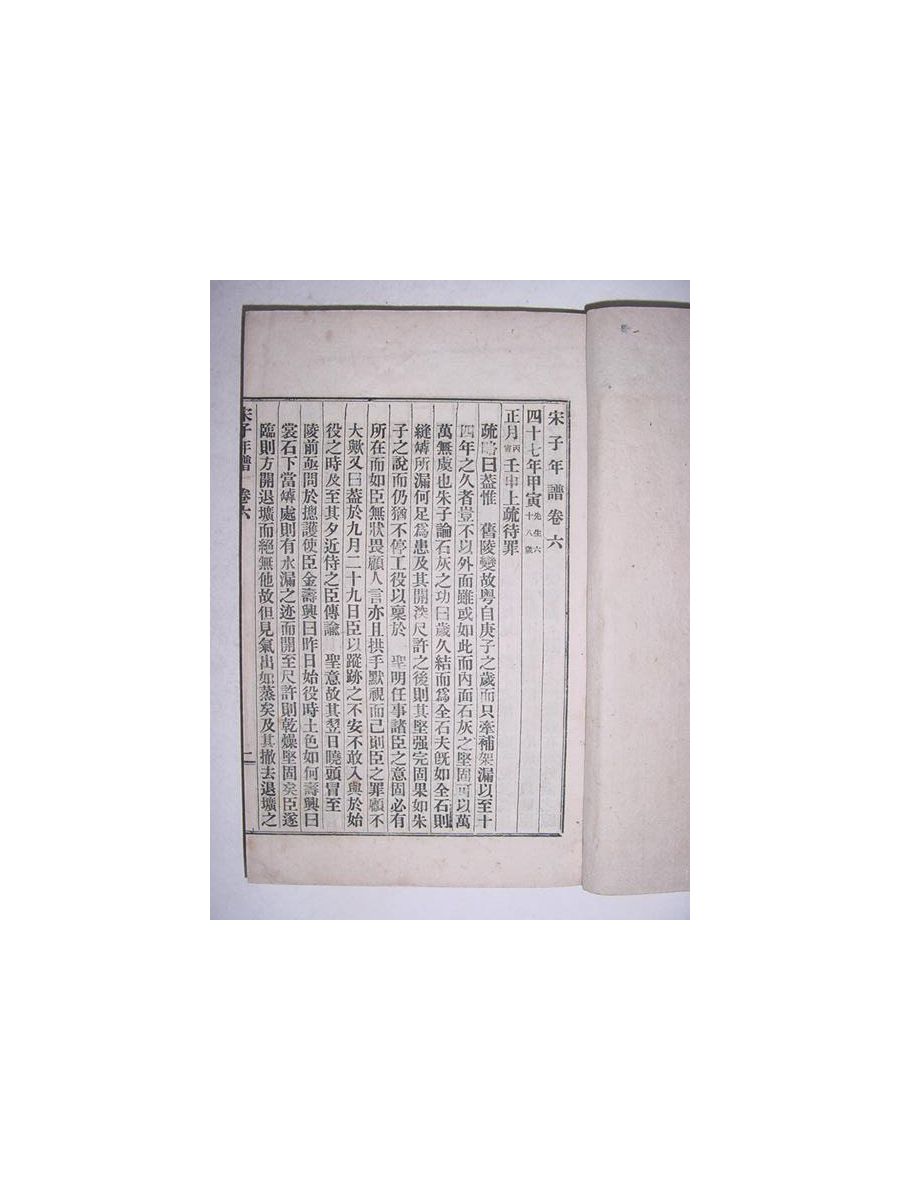 宋子年譜卷六
四十七年甲寅先生六十八歲
正月丙寅壬申上疏待罪
疏略曰蓋惟　舊陵變故粤自庚子之歲而只牽補架漏以至十
四年之久者豈不以外面雖或如此而內面石灰之堅固可以萬
萬無慮也朱子論石灰之功曰歲久結而爲全石夫旣如全石則
縫罅所漏何足爲患及其開淡尺許之後則其堅强完固果如朱
子之說而仍猶不停工役以稟於　聖明任事諸臣之意固必有
所在而如臣無狀畏顧人言亦且拱手默視而已則臣之罪顧不
大歟又曰蓋於九月二十九日臣以蹤跡之不安不敢入與於始
役之時及至其夕近侍之臣傳諭　聖意故其翌日曉頭冒至
陵前亟問於摠護使臣金壽興曰昨日始役時土色如何壽興曰
裳石下當罅處則有水漏之迹而開至尺許則乾燥堅固矣臣遂
臨則方開退壙而絕無他故但見氣出如蒸矣及其撤去退壙之
宋子年譜　卷六　一